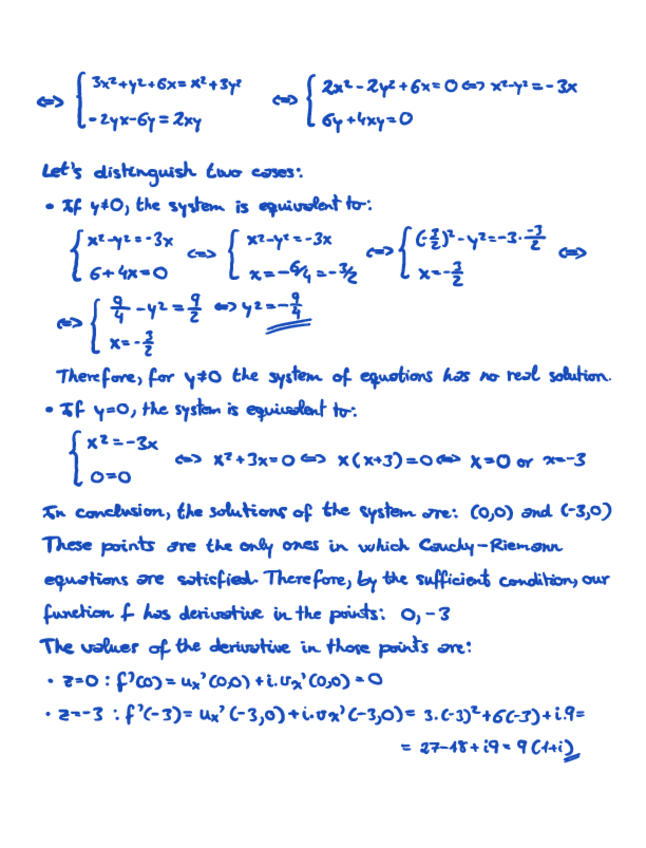 ⇔ { 3x²+y²+6x = x²+3y² ⇔ { 2x² - 2y² + 6x = 0 ⇔ x²-y² = -3x
-2yx-6y = 2xy 6y+4xy = 0
Let's distinguish two cases:
• If y≠0, the system is equivalent to:
{ x²-y² = -3x ⇔ { x²-y² = -3x ⇔ { (-3/2)² - y² = -3·-3/2 ⇔
6+4x=0 x = -6/4 = -3/2 x = -3/2
⇔ { 9/4 - y² = 9/2 ⇔ y² = -9/4
x = -3/2
Therefore, for y≠0 the system of equations has no real solution.
• If y=0, the system is equivalent to:
{ x² = -3x
0=0 ⇔ x²+3x=0 ⇔ x(x+3)=0 ⇔ x=0 or x=-3
In conclusion, the solutions of the system are: (0,0) and (-3,0)
These points are the only ones in which Cauchy-Riemann
equations are satisfied. Therefore, by the sufficient condition, our
function f has derivative in the points: 0, -3
The values of the derivative in those points are:
• z=0 : f'(0) = ux'(0,0) + i·vx'(0,0) = 0
• z=-3 : f'(-3) = ux'(-3,0) + i·vx'(-3,0) = 3·(-3)²+6(-3)+i·9 =
= 27-18+i9 = 9(1+i)